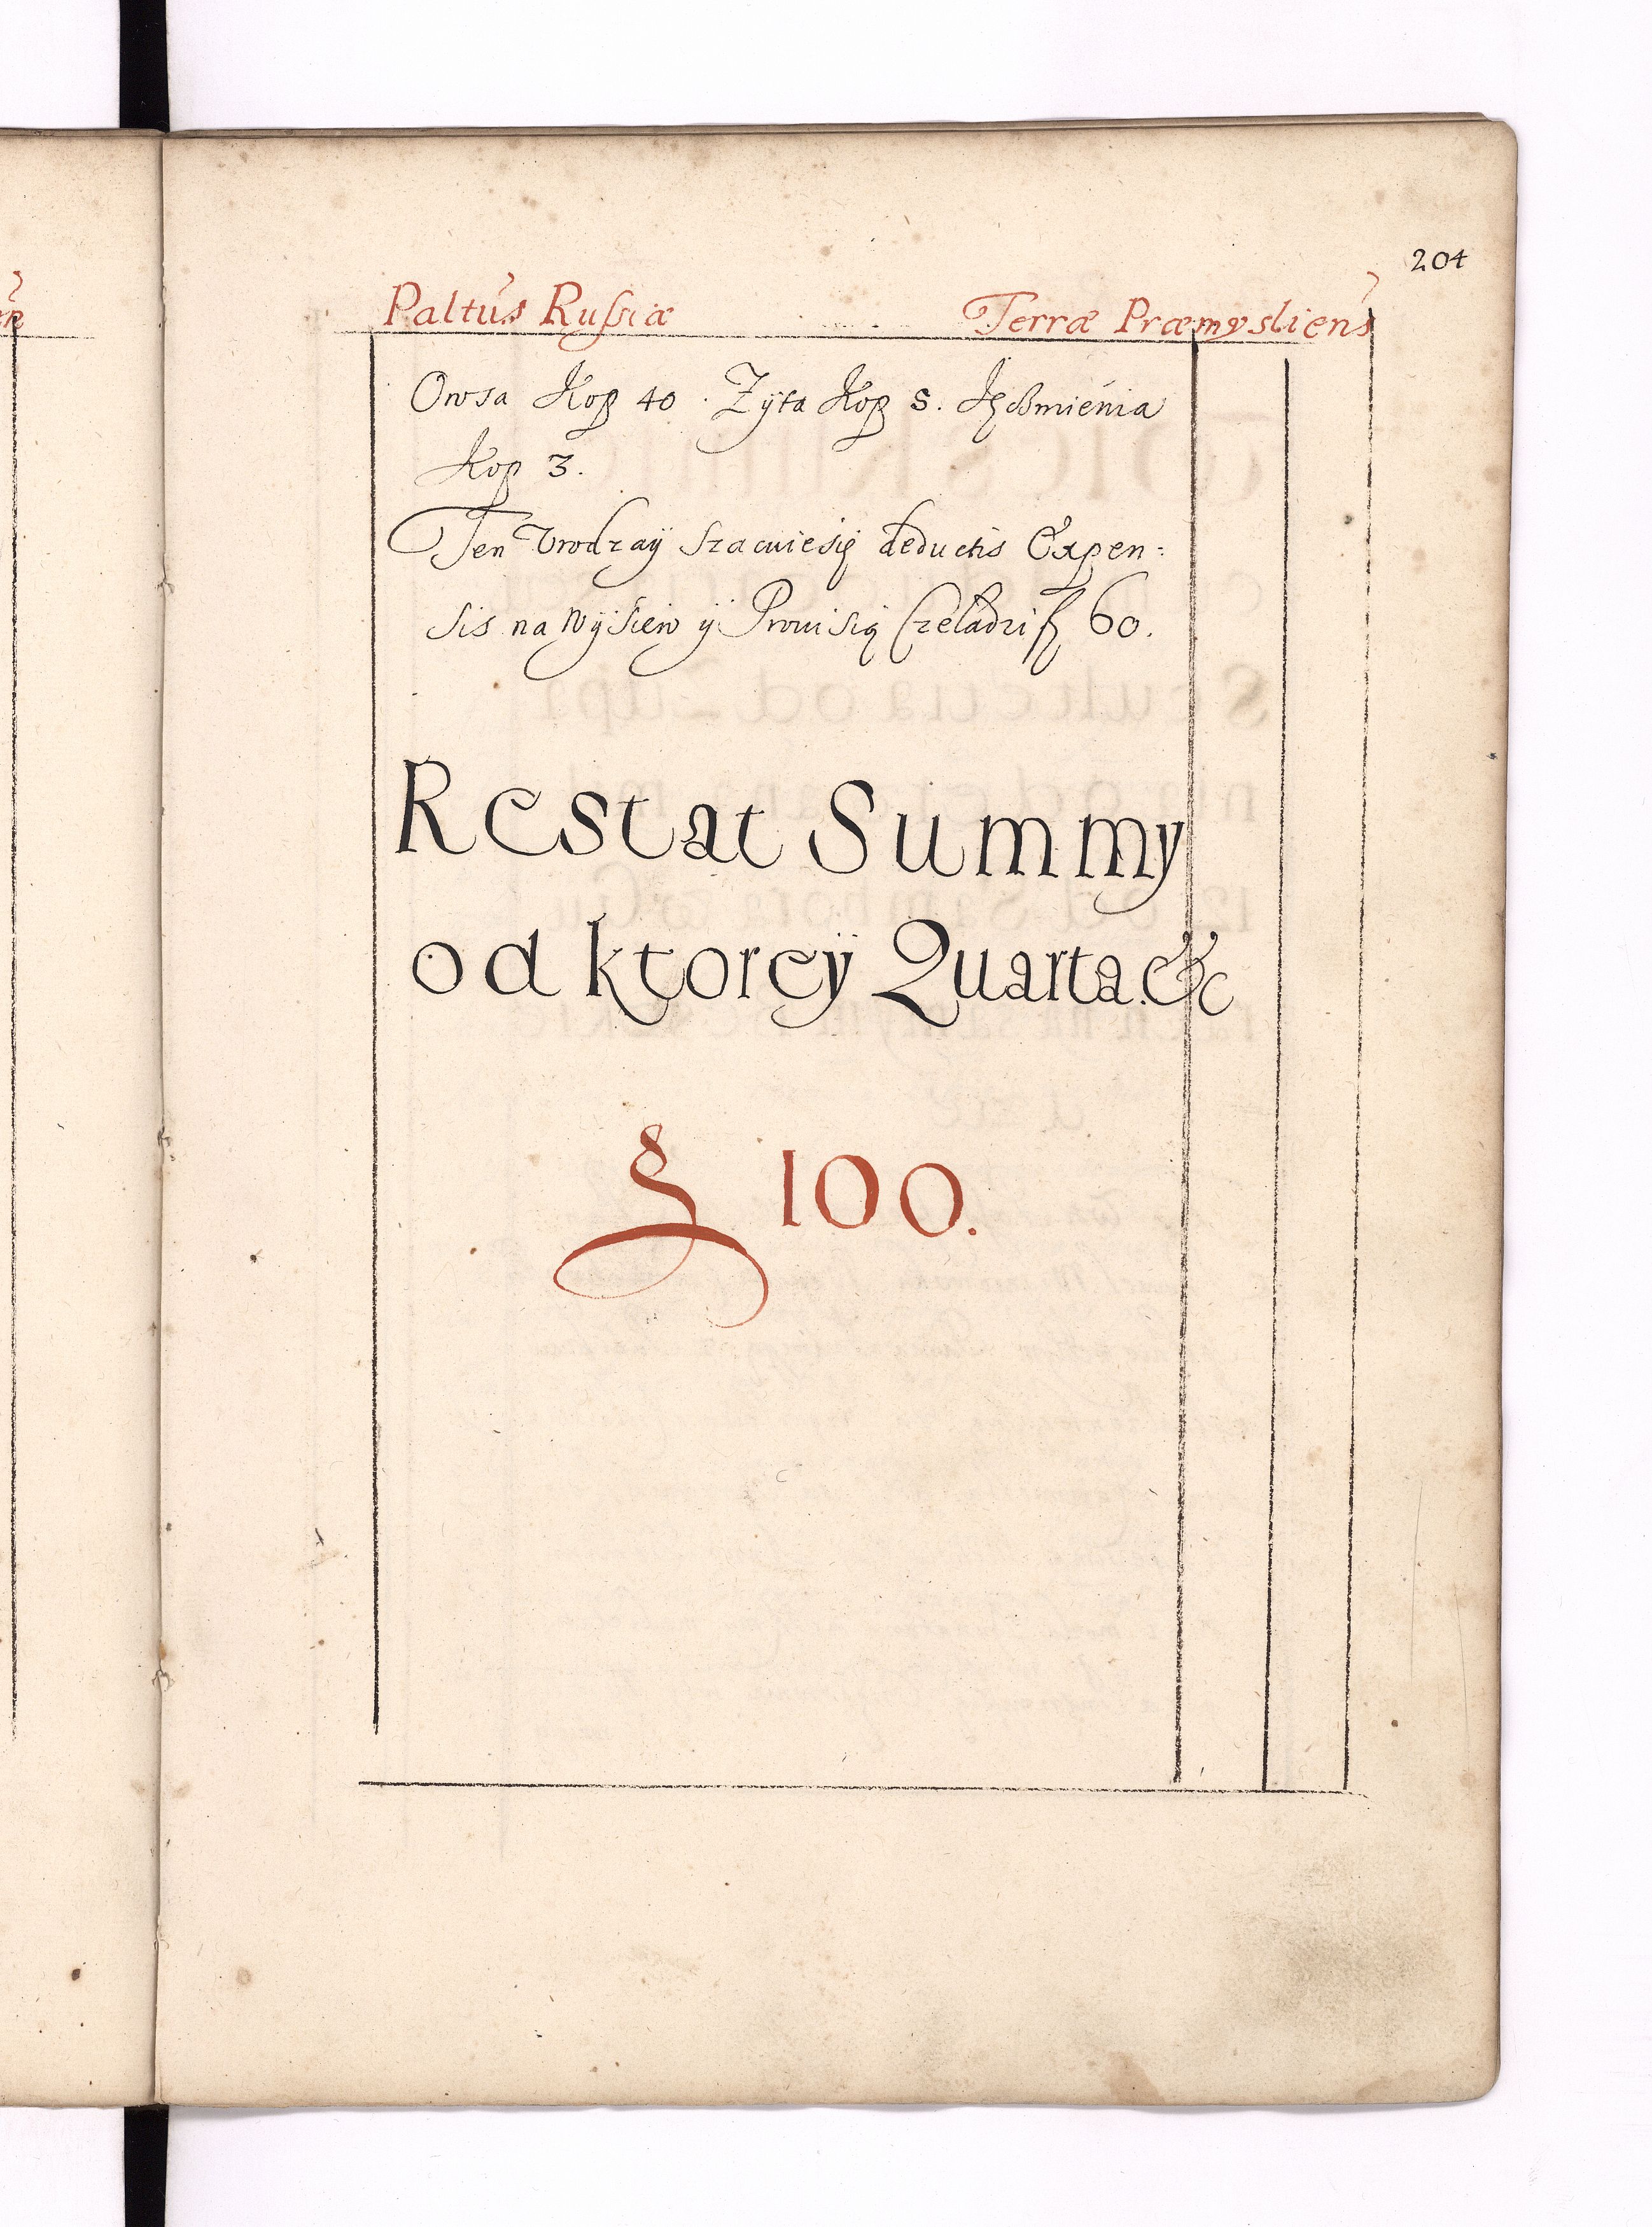 204
Paltus Russiæ Terræ Præmysliens
Owsa Kop 40. Zyta Kop 8. Jęcżmienia
Kop 3.
Ten Vrodzay szacuiesię deductis Expen:
sis na wysiew ÿ Prouisią Czeladzi f 60.
Restat Summy
od ktorey Quarta &c
f 100.